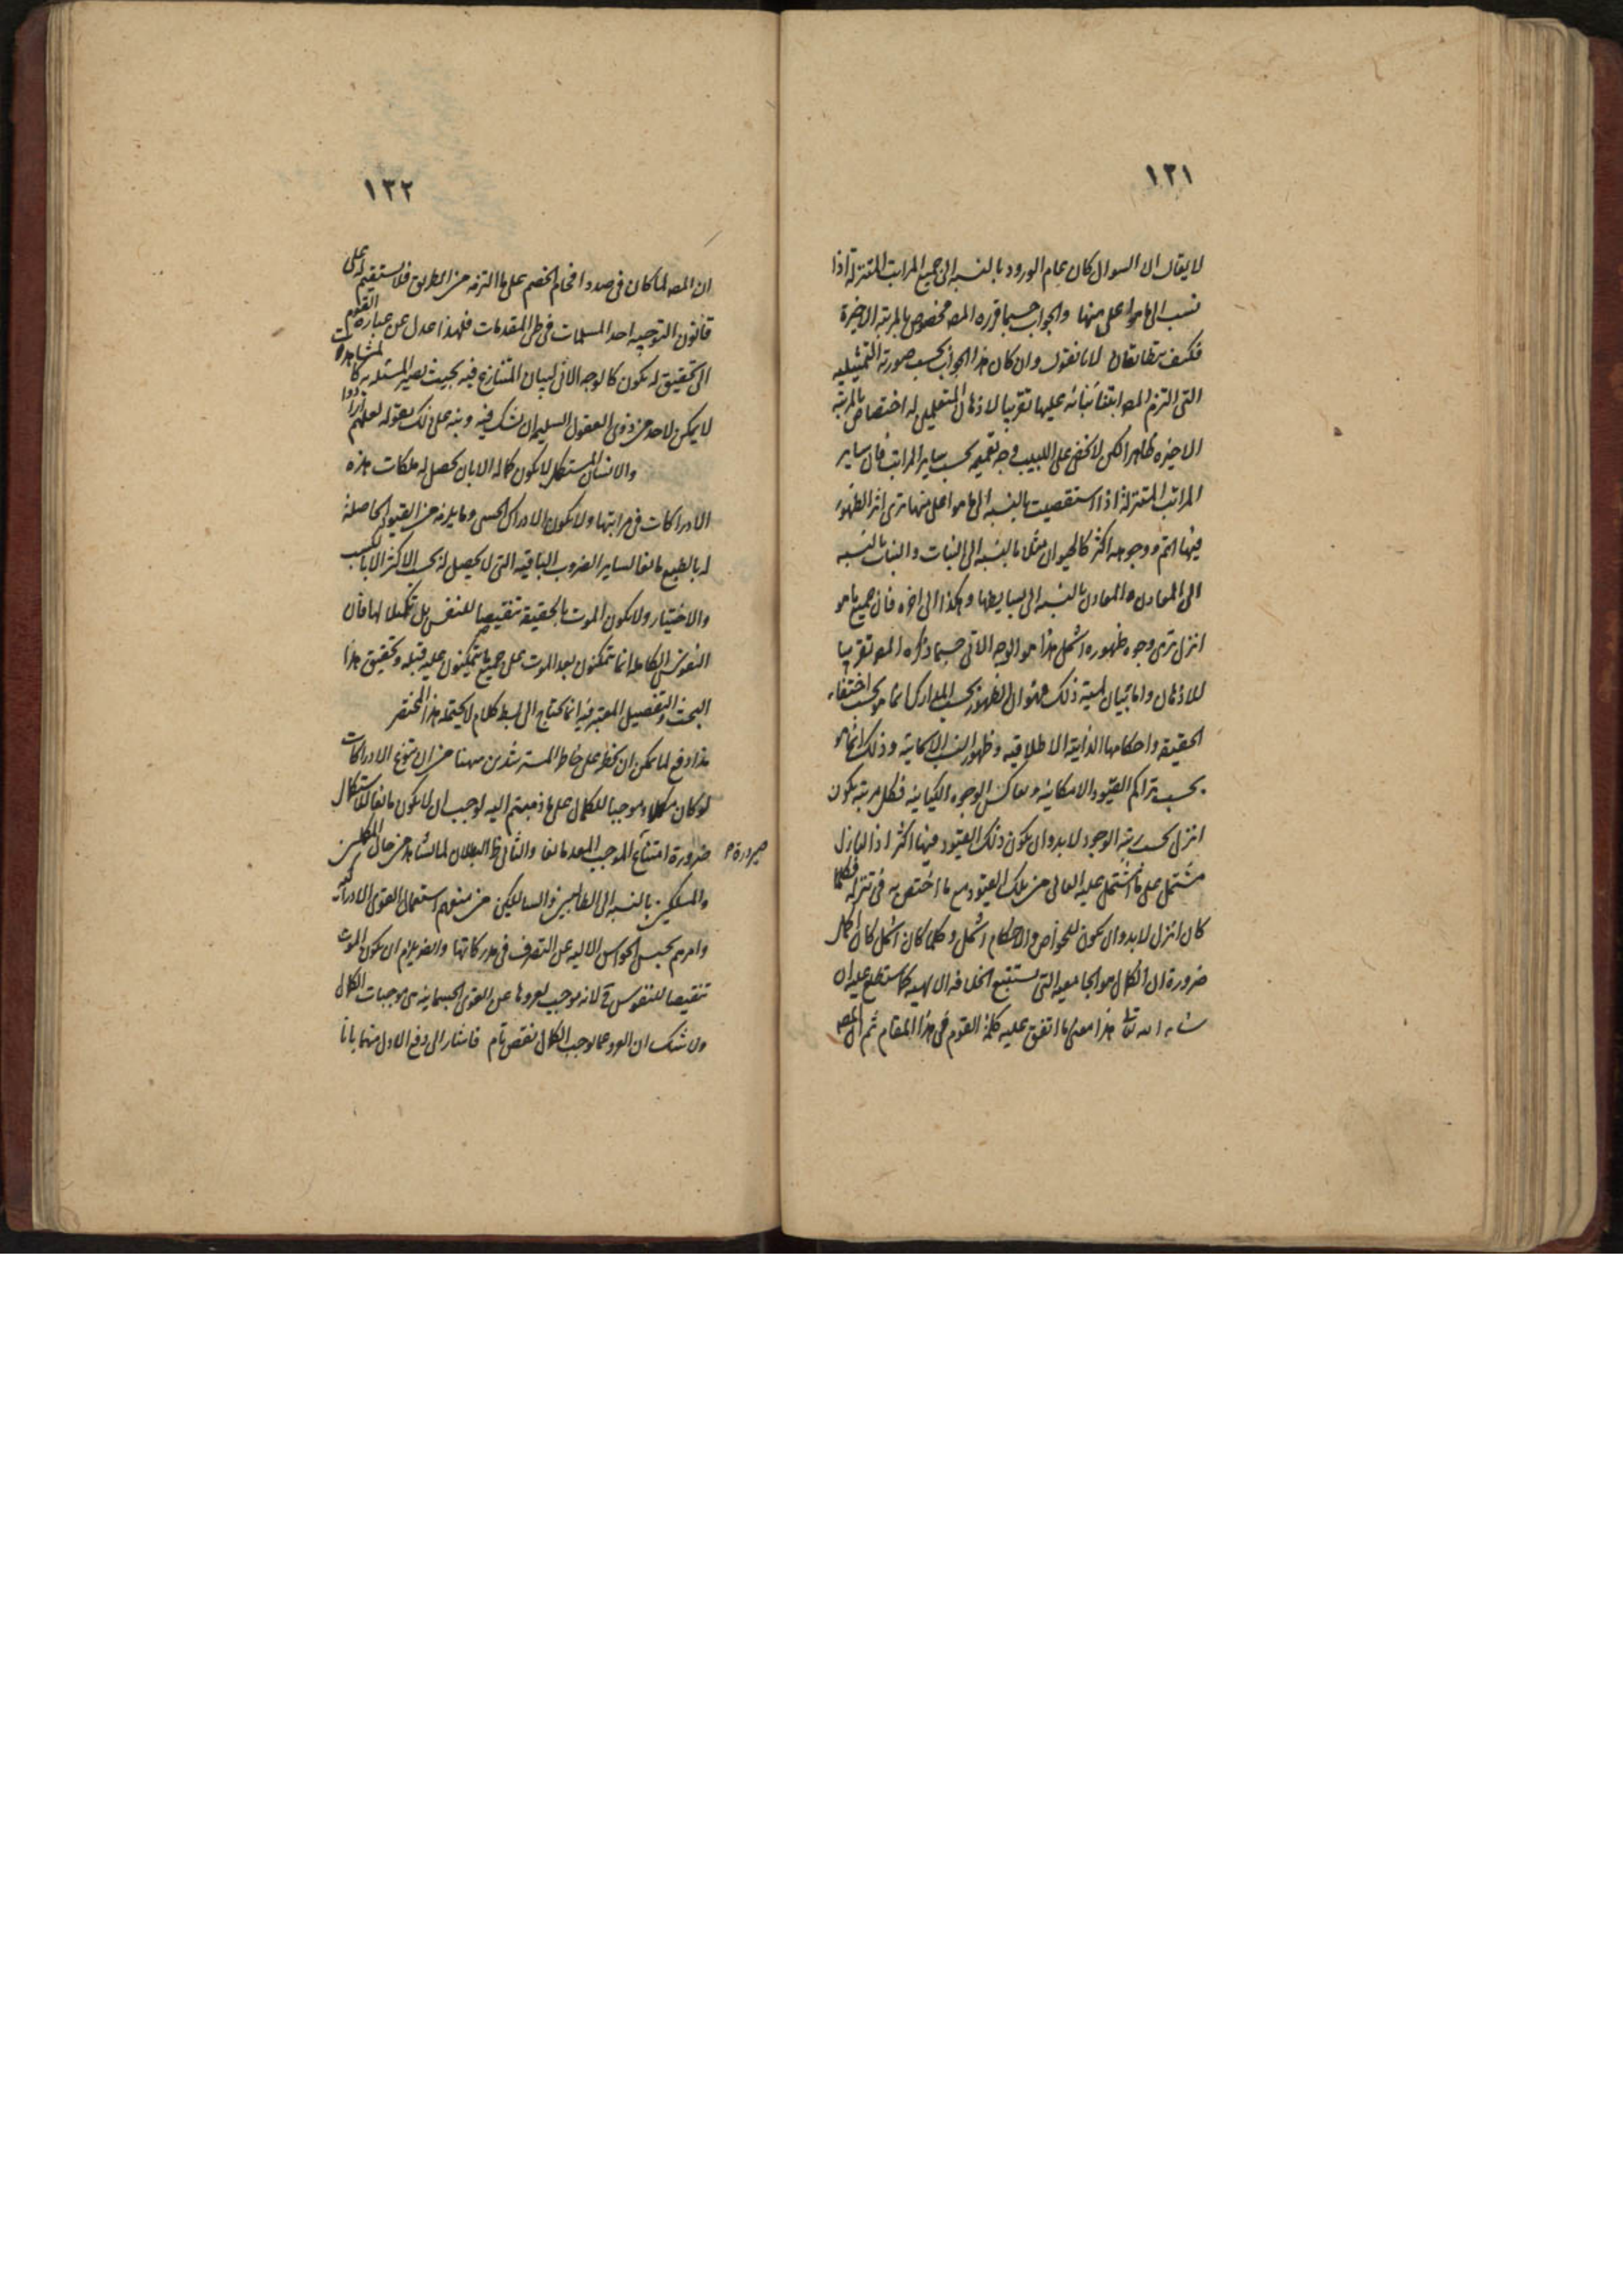 ١٢١
لا يقال ان السوال كان عام الورود بالنسبه الى جميع المراتب المتنزله اذا
نسب الى ما هو اعلى منها والجواب حسبما قرره المصـ مخصوص بالمرتبه الاخيرة
فكيف يتطابقان لانا نقول وان كان هذا الجواب بحسب صورته التمثيليه
التى التزم المصـ ابتناء بيانه عليها تقريبا لاذهان المتعلمين له اختصاص بالمرتبه
الاخيره ظاهرا لكن لا يخفى على اللبيب وجه تعميمه بحسب ساير المراتب فان ساير
المراتب المتنزلة اذا استقصيت بالنسبه الى ما هو اعلى منها ترى اثر الظهور
فيها اتم ووجوهه اكثر كالحيوان مثلا بالنسبه الى النبات والنبات بالنسبه
الى المعادن والمعادن بالنسبه الى بسايطها وهكذا الى اخره فان جميع ما هو
انزل ترى وجوه ظهوره اشمل هذا هو الوجه الانى حسبما ذكره المصـ تقريبا
للاذهان واما بيان لميته ذلك فهو ان الظهور بحسب المدارك انما هو بحسب اختفاء
الحقيقه واحكامها الذاتية الاطلاقيه وظهور النسب الامكانيه وذلك انما هو
بحسب تراكم القيود الامكانيه وتعاكس الوجوه الكيانيه فكل مرتبه يكون
انزل بحسب رتبه الوجود لا بد وان يكون ذلك القيود فيها اكثر اذ النازل
مشتمل على ما اشتمل عليه العالى من تلك القيود مع ما اختص به فى تنزله فكلما
كان انزل لا بد وان يكون للخواص والاحكام اشمل وكلما كان اشمل كان اكمل
ضرورة ان الكمال هو الجامعيه التى يستتبع الخلافه الالهيه كما ستطلع عليه ان
شاء الله تعا هذا معنى ما اتفق عليه كلمة القوم فى هذا المقام ثم ان المصـ
١٢٢
ان المصـ لما كان فى صدد افحام الخصم على ما التزمه من الطريق فلا يستقيم له على
قانون التوجيه احد المسلمات فى طى المقدمات فلهذا عدل عن عبارة القوم
الى تحقيق له يكون كالوجه الانى لبيان المتنازع فيه بحيث تصير المسئله به كالمشاهدات
لا يمكن لاحد من ذوى العقول السليمه ان يشك فيه ونبه على ذلك بقوله لعلهم ارادوا
والانسان المستكمل لا يكون كماله الا بان يحصل له ملكات هذه
الادراكات فى مراتبها ولا يكون الادراك الحسى وما يلزمه من القيود الحاصلة
له بالطبع مانعا لساير الضروب الباقيه التى لا يحصل له بحسب الاكثر الا بالكسب
والاختيار ولا يكون الموت بالحقيقة تنقيصا للنفس بل تكميلا لها فان
النفوس الكامله انما يتمكنون بعد الموت على جميع ما يتمكنون عليه قبله وتحقيق هذا
البحث والتفصيل المعتبر فيه انما يحتاج الى بسط كلام لا يحتمله هذا المختصر
هذا دفع لما يمكن ان يخطر على خاطر المسترشدين ههنا من ان تنوع الادراكات
لو كان مكملا وموجبا للكمال على ما ذهبتم اليه لوجب ان لا يكون مانعا للاستكمال
ضرورة امتناع الموجب المعد مانعا والثانى ظ البطلان لما نشاهد من حال المكملين
صيرورة
والمسلكين بالنسبه الى الطالبين والسالكين من منعهم استعمال القوى الادراكيه
وامرهم بحبس الحواس الاليه عن التصرف فى مدركاتها وايضا يلزم ان يكون الموت
تنقيصا للنفوس ح لانه موجب لعروها عن القوى الجسمانيه هى موجبات الكمال
ولا شك ان العرو عما يوجب الكمال نقص تام فاشار الى دفع الاول منهما بانا